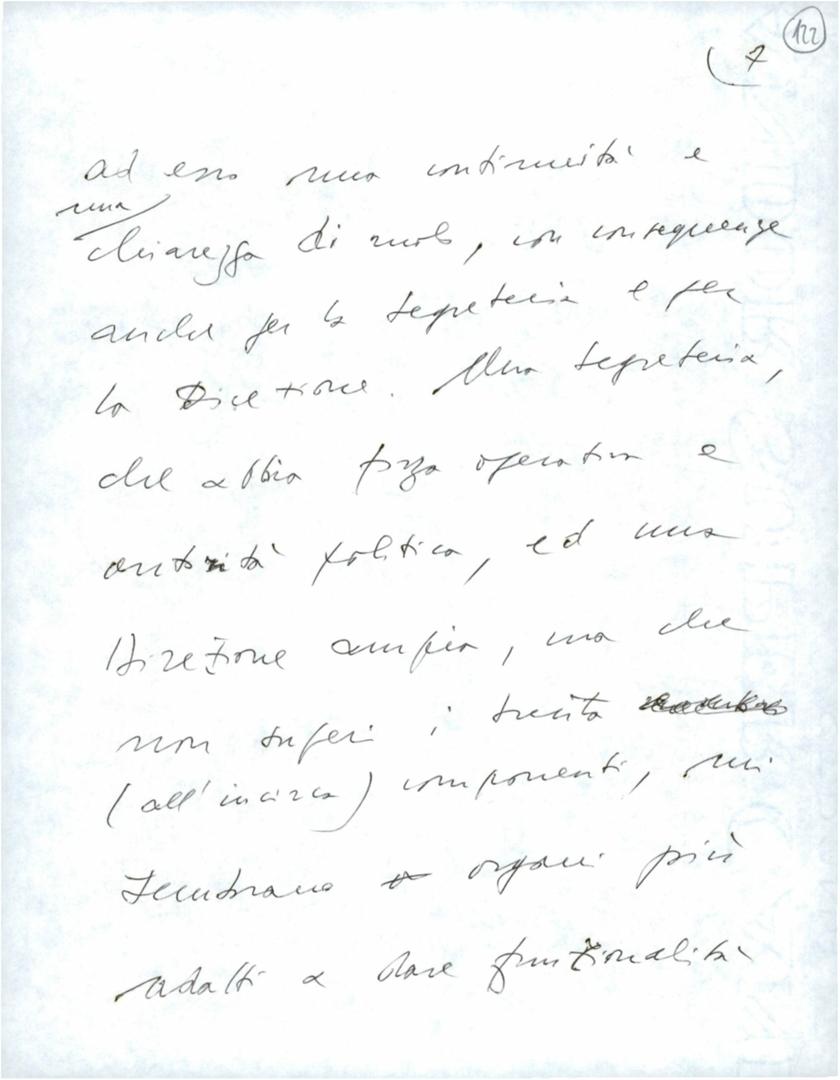 122
7
ad esso una continuità e
una
chiarezza di ruolo, con conseguenze
anche per la segreteria e per
la Direzione. Una segreteria,
che abbia forza operativa e
autorità politica, ed una
Direzione ampia, ma che
non superi i trenta
(all'incirca) componenti, mi
sembrano organi più
adatti a dare funzionalità